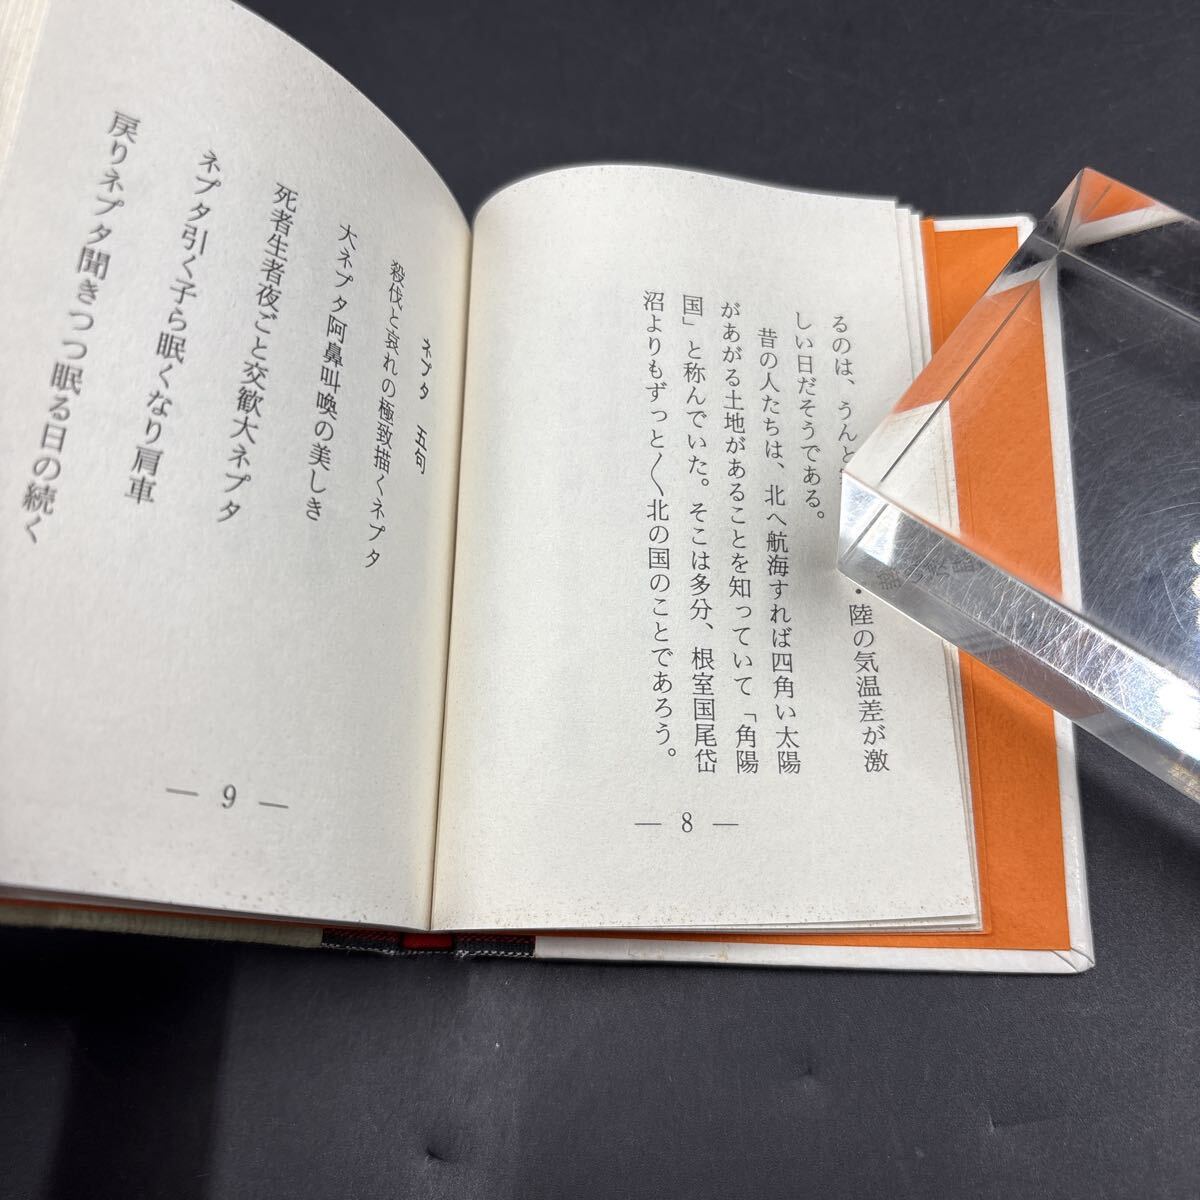 るのは、うんと・陸の気温差が激
しい日だそうである。
昔の人たちは、北へ航海すれば四角い太陽
があがる土地があることを知っていて「角陽
国」と称んでいた。そこは多分、根室国尾岱
沼よりもずっと〱北の国のことであろう。
— 8 —
ネプタ 五句
殺伐と哀れの極致描くネプタ
大ネプタ阿鼻叫喚の美しき
死者生者夜ごと交歓大ネプタ
ネプタ引く子ら眠くなり肩車
戻りネプタ聞きつつ眠る日の続く
— 9 —